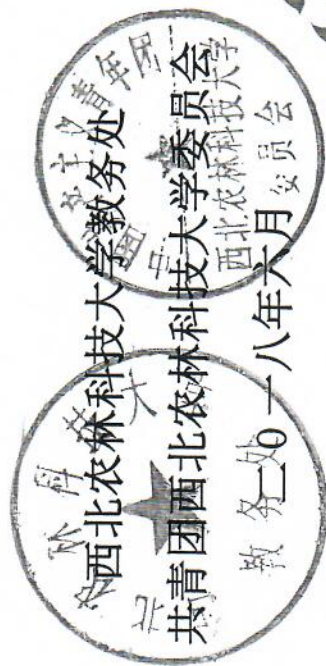 西北农林科技大学教务处
共青团西北农林科技大学委员会
二〇一八年六月
教务处
西北农林科技大学
委员会